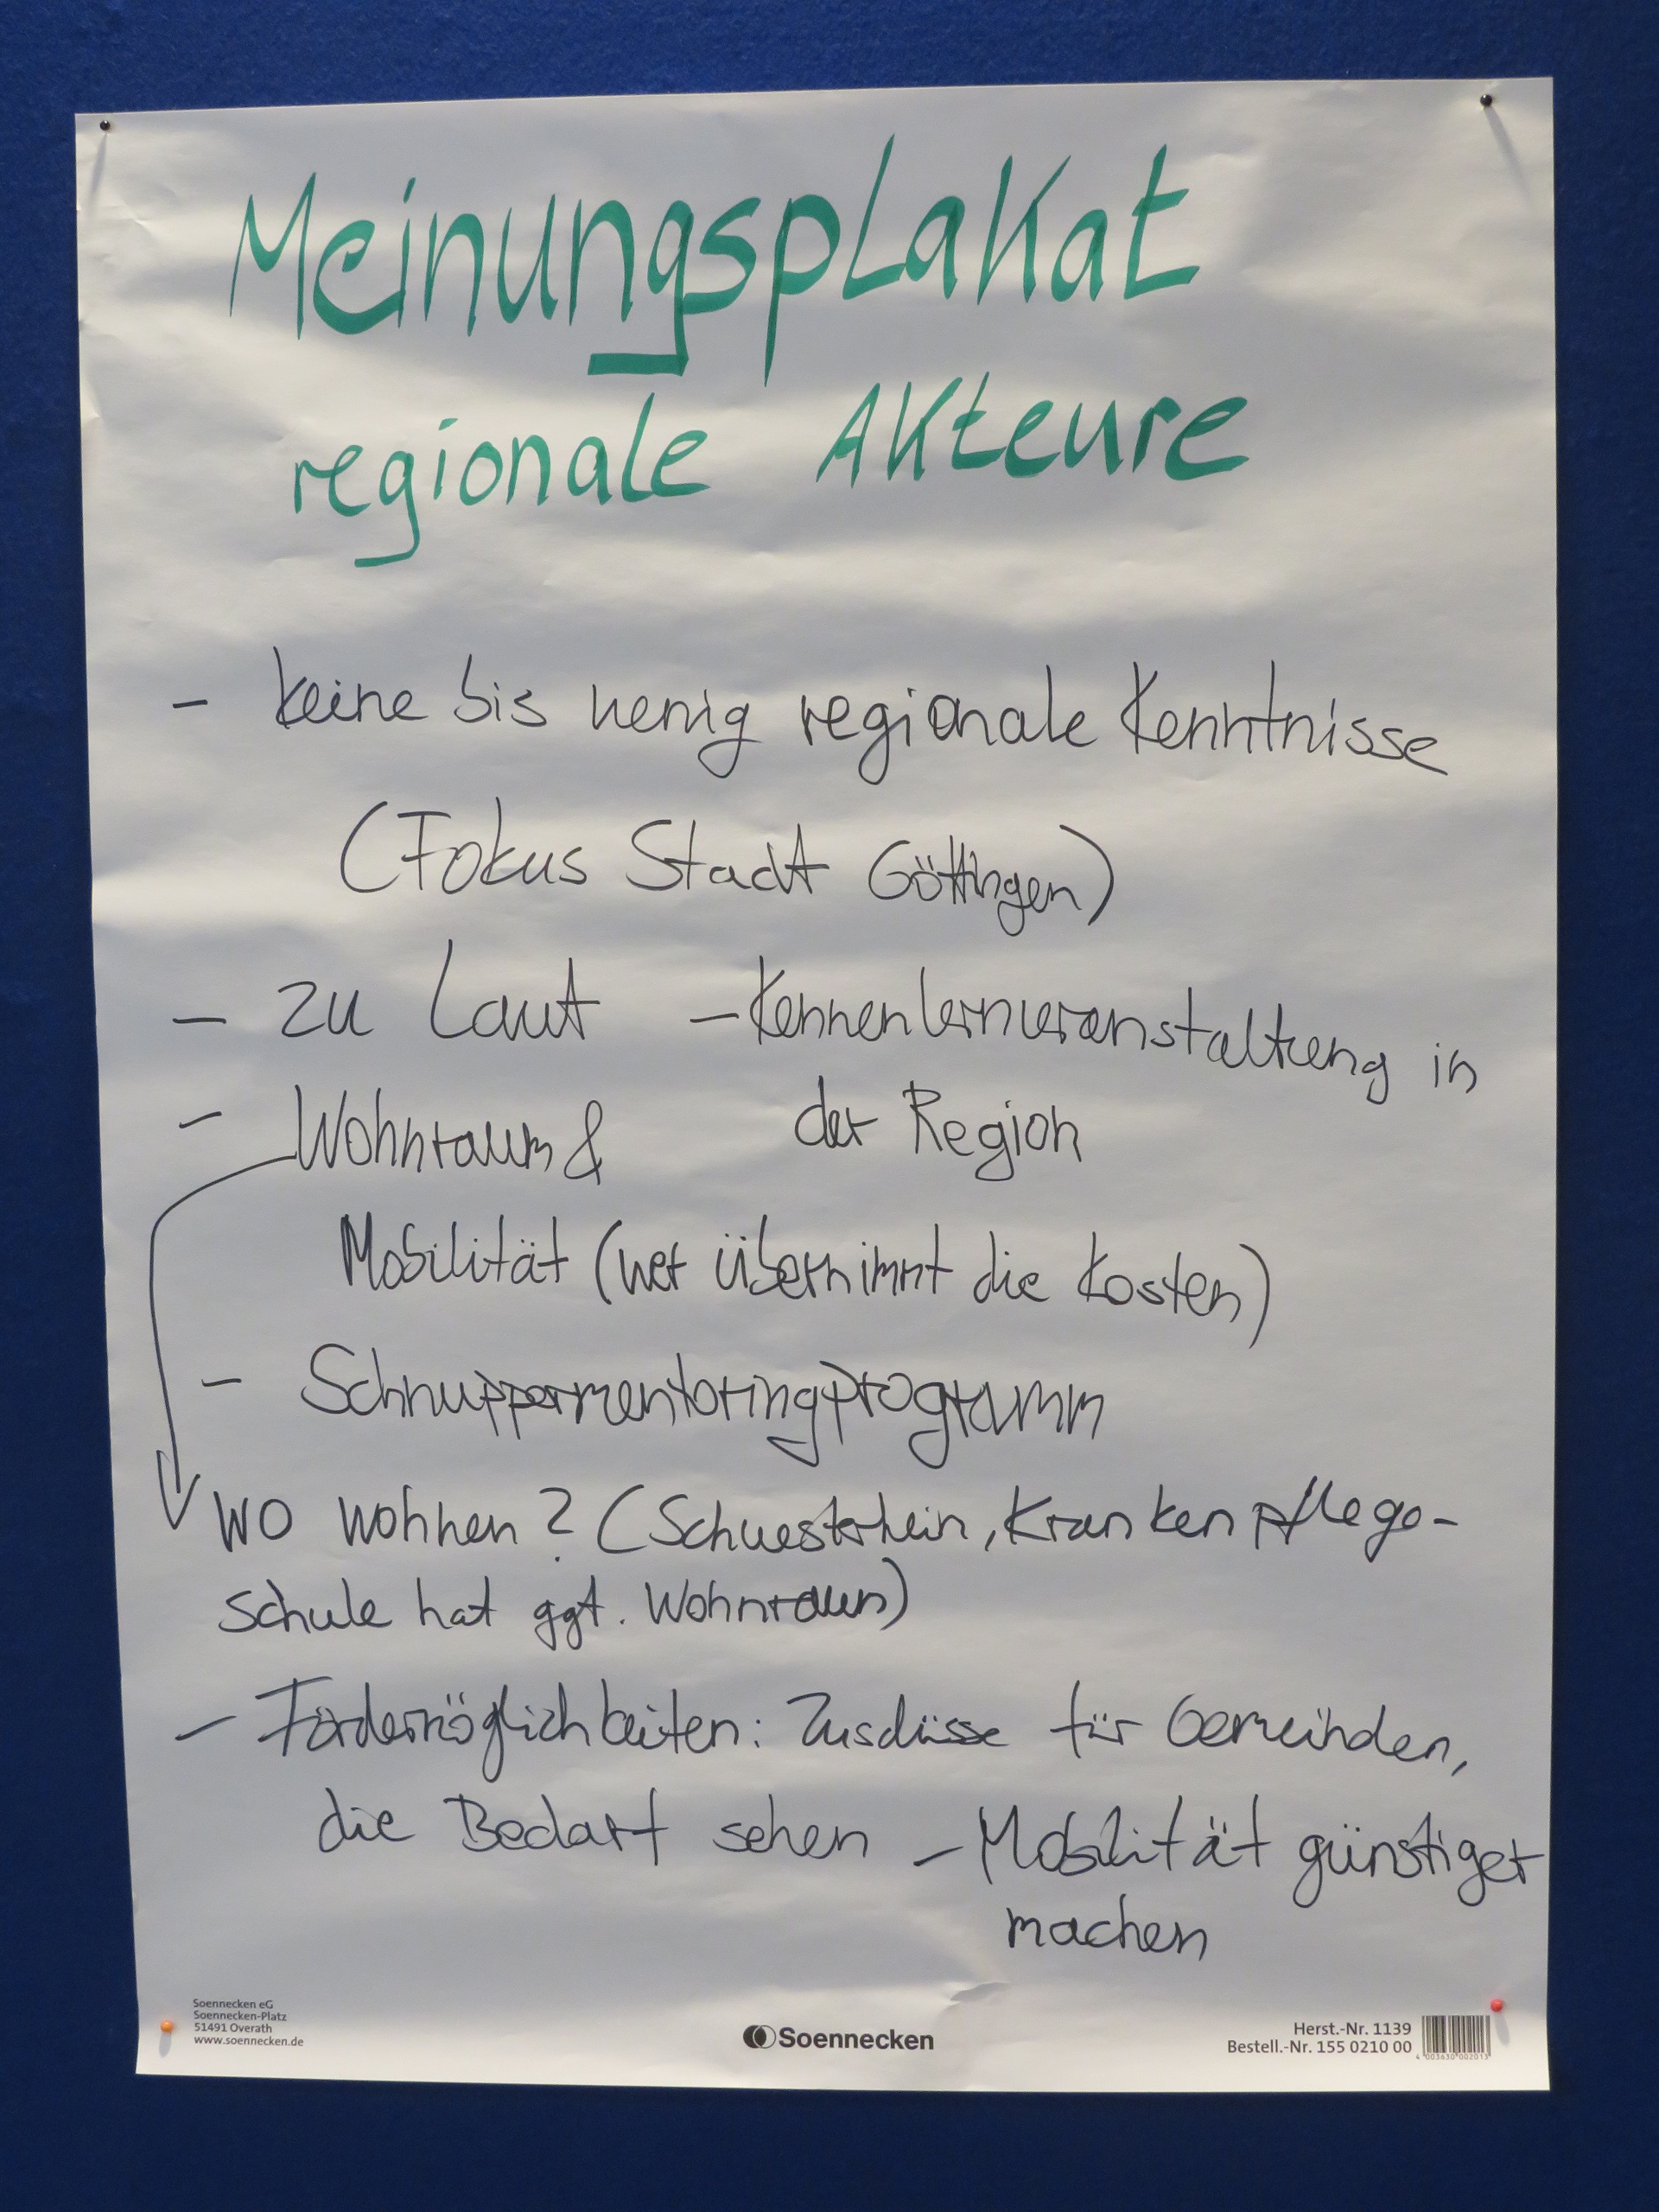 Meinungsplakat
regionale Akteure
- keine bis wenig regionale Kenntnisse
(Fokus Stadt Göttingen)
- zu Laut
- Kennenlernveranstaltung in
der Region
- Wohnraum &
Mobilität (wer übernimmt die Kosten)
- Schnuppermentoringprogramm
wo wohnen? (Schwesterhein, Krankenpflege-
schule hat ggf. Wohnraum)
- Fördermöglichkeiten: Zuschüsse für Gemeinden,
die Bedarf sehen
- Mobilität günstiger
machen
Soennecken eG
Soennecken-Platz
51491 Overath
www.soennecken.de
Soennecken
Herst.-Nr. 1139
Bestell.-Nr. 155 0210 00
4 003630 002013